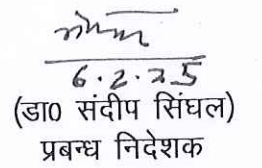 6.2.25
(डा0 संदीप सिंघल)
प्रबन्ध निदेशक